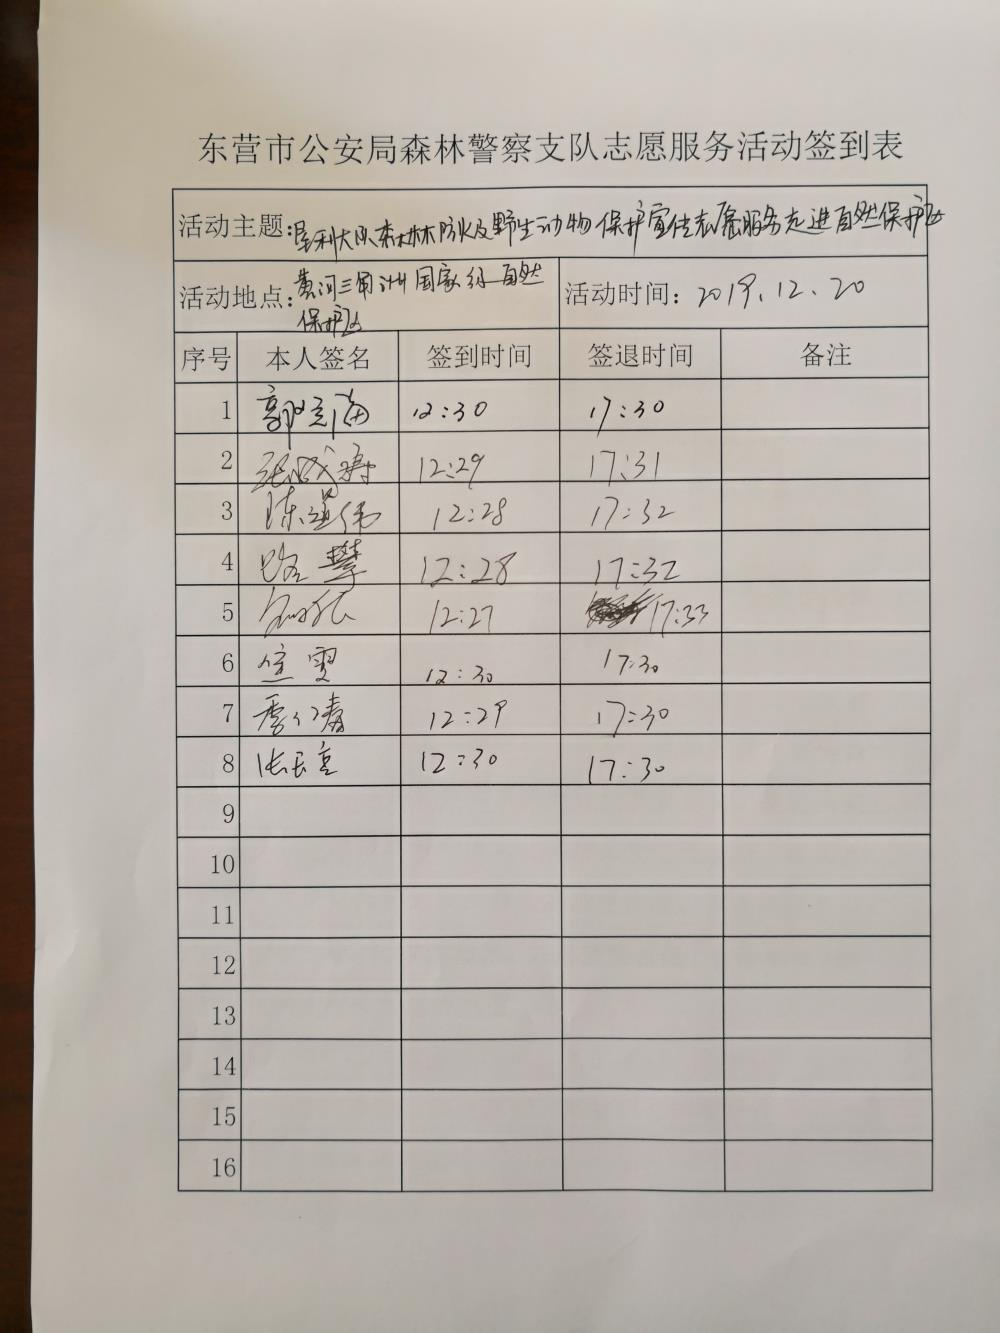 东营市公安局森林警察支队志愿服务活动签到表
活动主题:垦利大队森林防火及野生动物保护宣传志愿服务走进自然保护区
活动地点:黄河三角洲国家级自然
保护区
活动时间:2019.12.20
序号 本人签名 签到时间 签退时间 备注
1 12:30 17:30
2 12:29 17:31
3 陈道伟 12:28 17:32
4 路攀 12:28 17:32
5 12:27 17:33
6 焦雯 12:30 17:30
7 12:29 17:30
8 张长亮 12:30 17:30
9
10
11
12
13
14
15
16